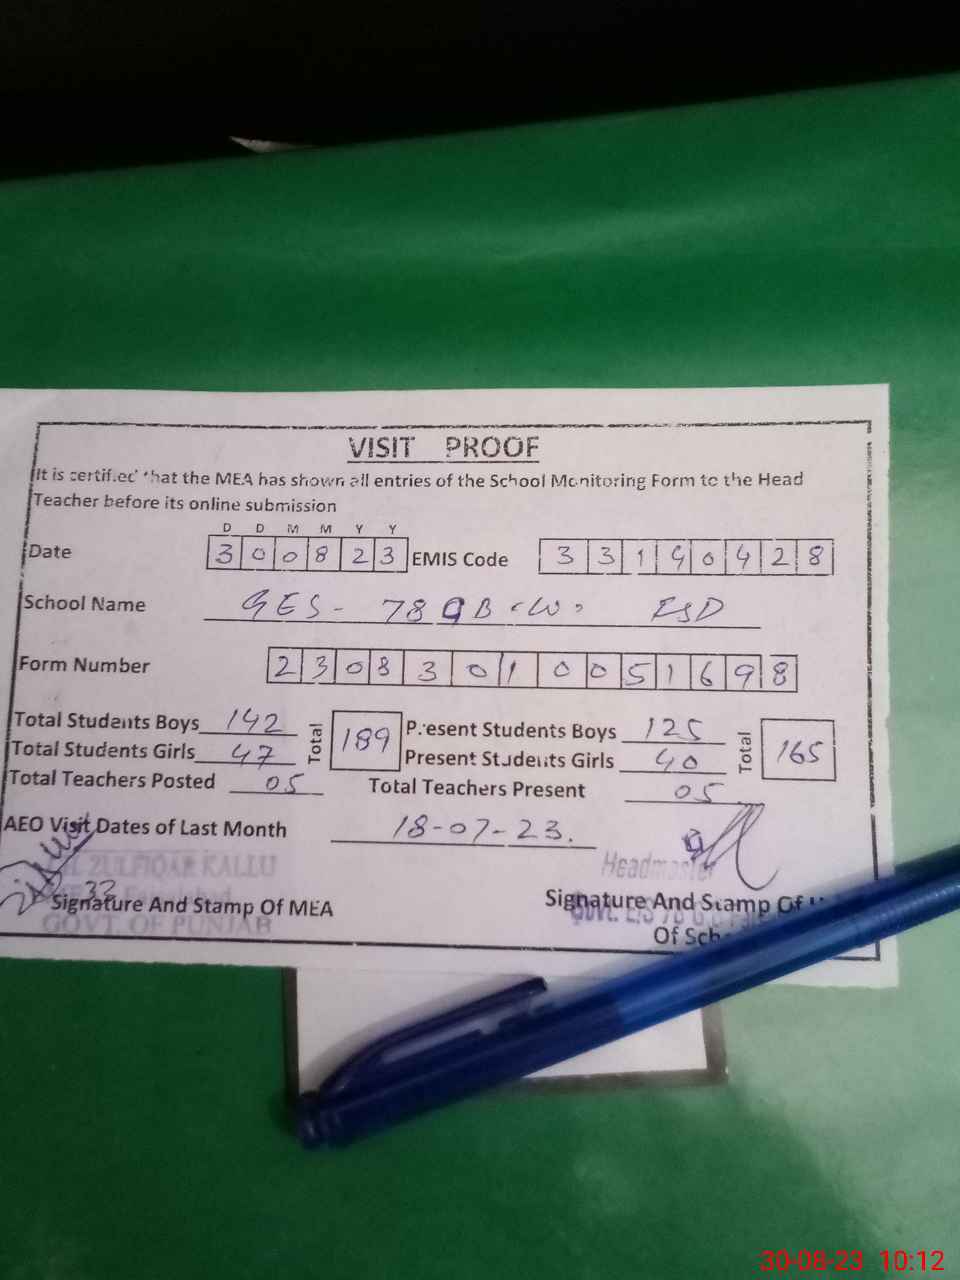 VISIT PROOF
It is certified that the MEA has shown all entries of the School Monitoring Form to the Head
Teacher before its online submission
D D M M Y Y
Date 3 0 0 8 2 3 EMIS Code 3 3 1 9 0 4 2 8
School Name GES - 78 GB (W) FSD
Form Number 2 3 0 8 3 0 1 0 0 5 1 6 9 8
Total Students Boys 142 Total 189 Present Students Boys 125 Total 165
Total Students Girls 47 Present Students Girls 40
Total Teachers Posted 05 Total Teachers Present 05
AEO Visit Dates of Last Month 18-07-23.
ZULFIQAR KALLU
Headmaster
33
Signature And Stamp Of MEA Signature And Stamp Of
GOVT. OF PUNJAB
Of
30-08-23 10:12